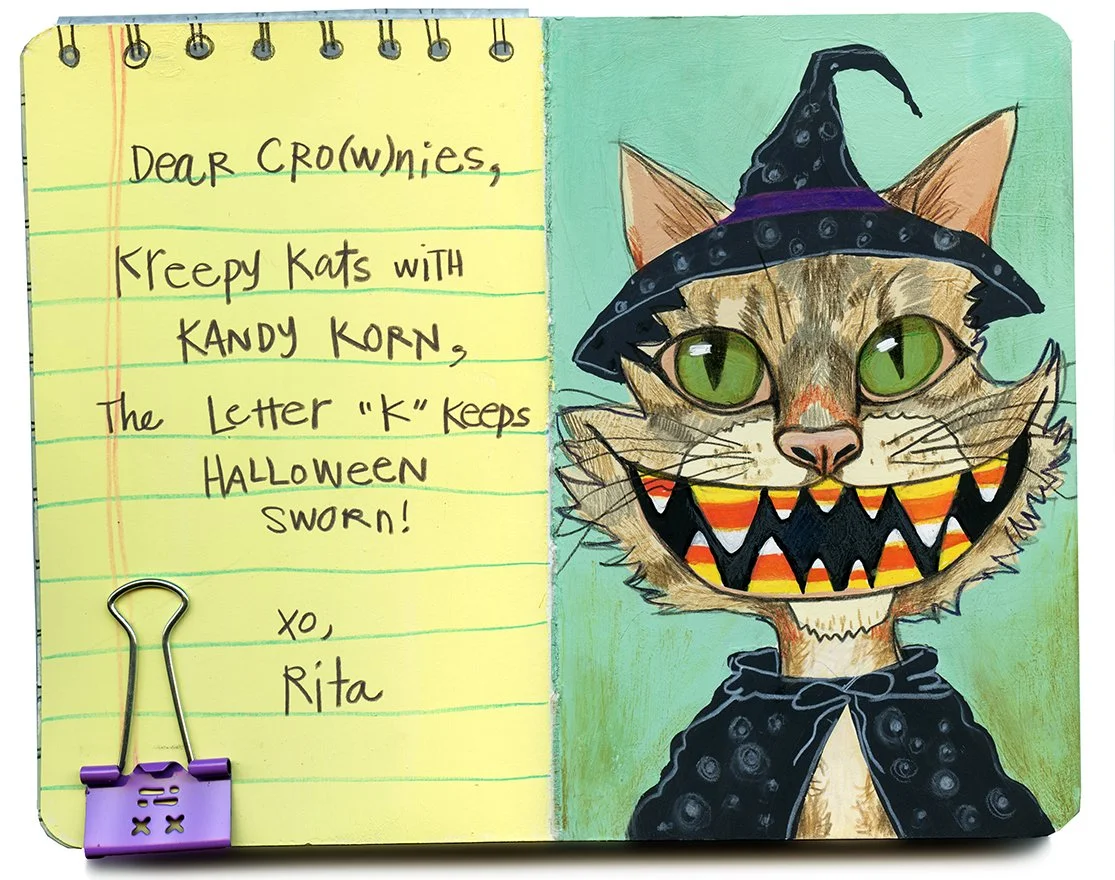 Dear CRO(w)nies,
Kreepy Kats with
KANDY KORN,
The Letter "K" Keeps
HALLOWEEN
SWORN!
xo,
Rita